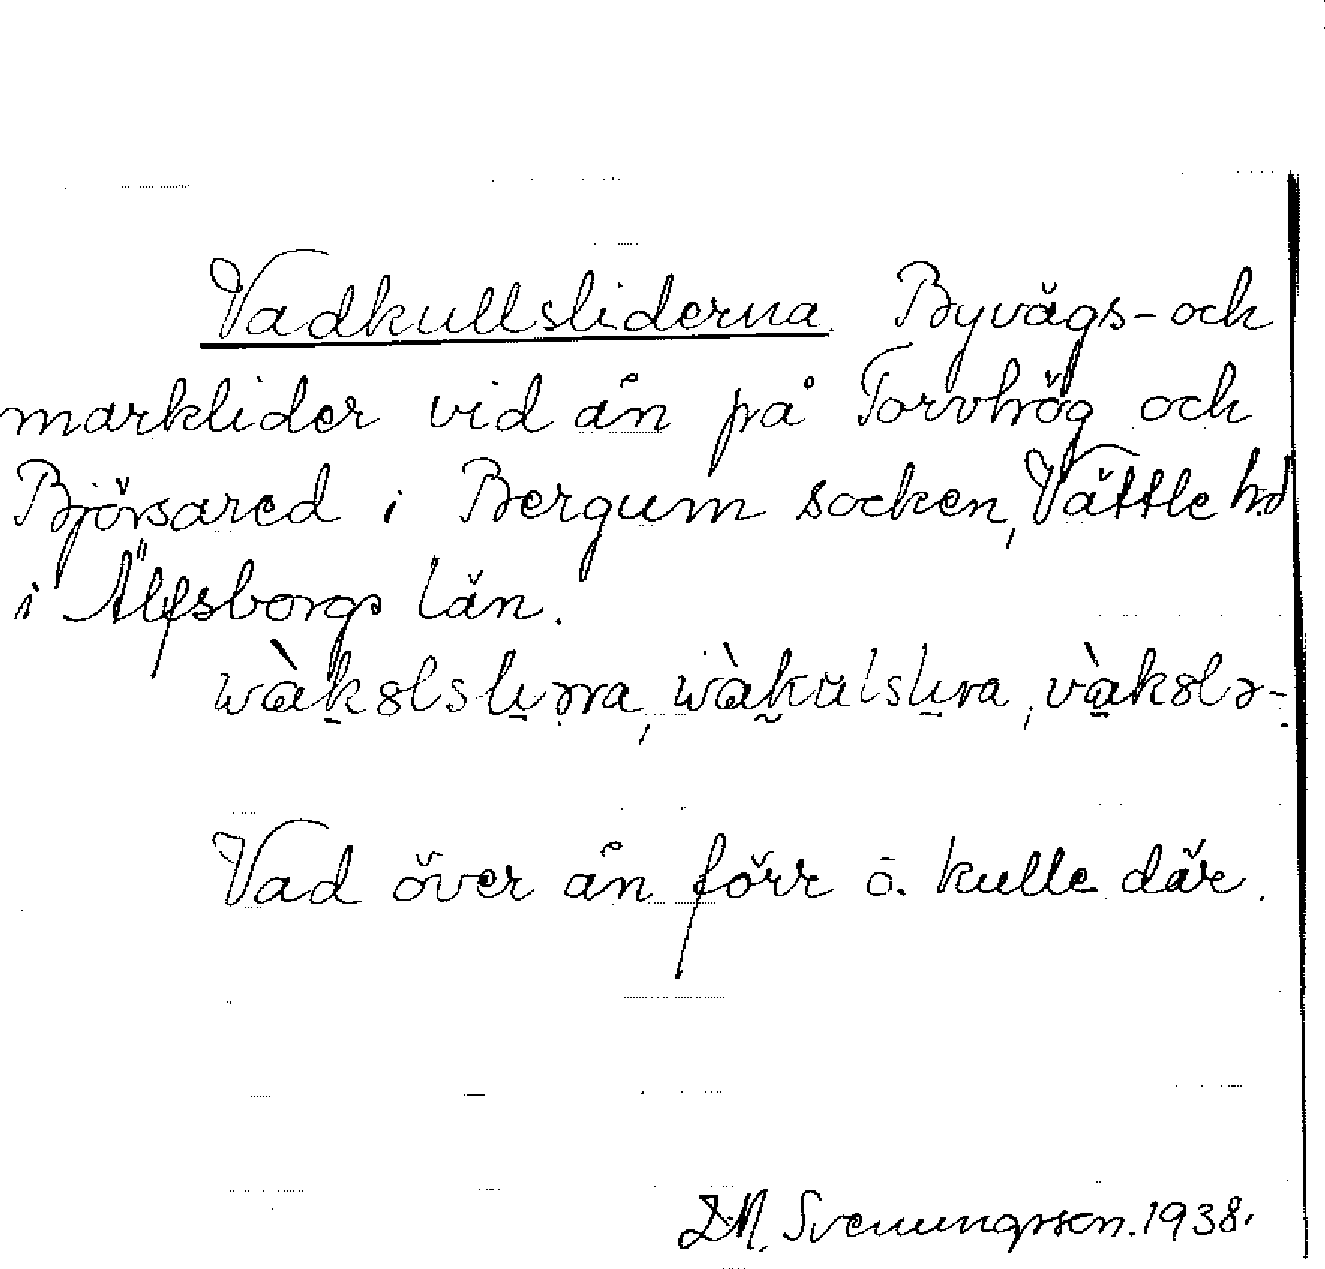 Vadkullsliderna. Byvägs- och
marklider vid ån på Torvhög och
Björsared i Bergum socken, Vättle hd
i Älfsborgs län.
wàkslslιɿra, wàkulslιra, vàkslə-
Vad över ån förr o. kulle där.
D.M. Svenungsson. 1938.